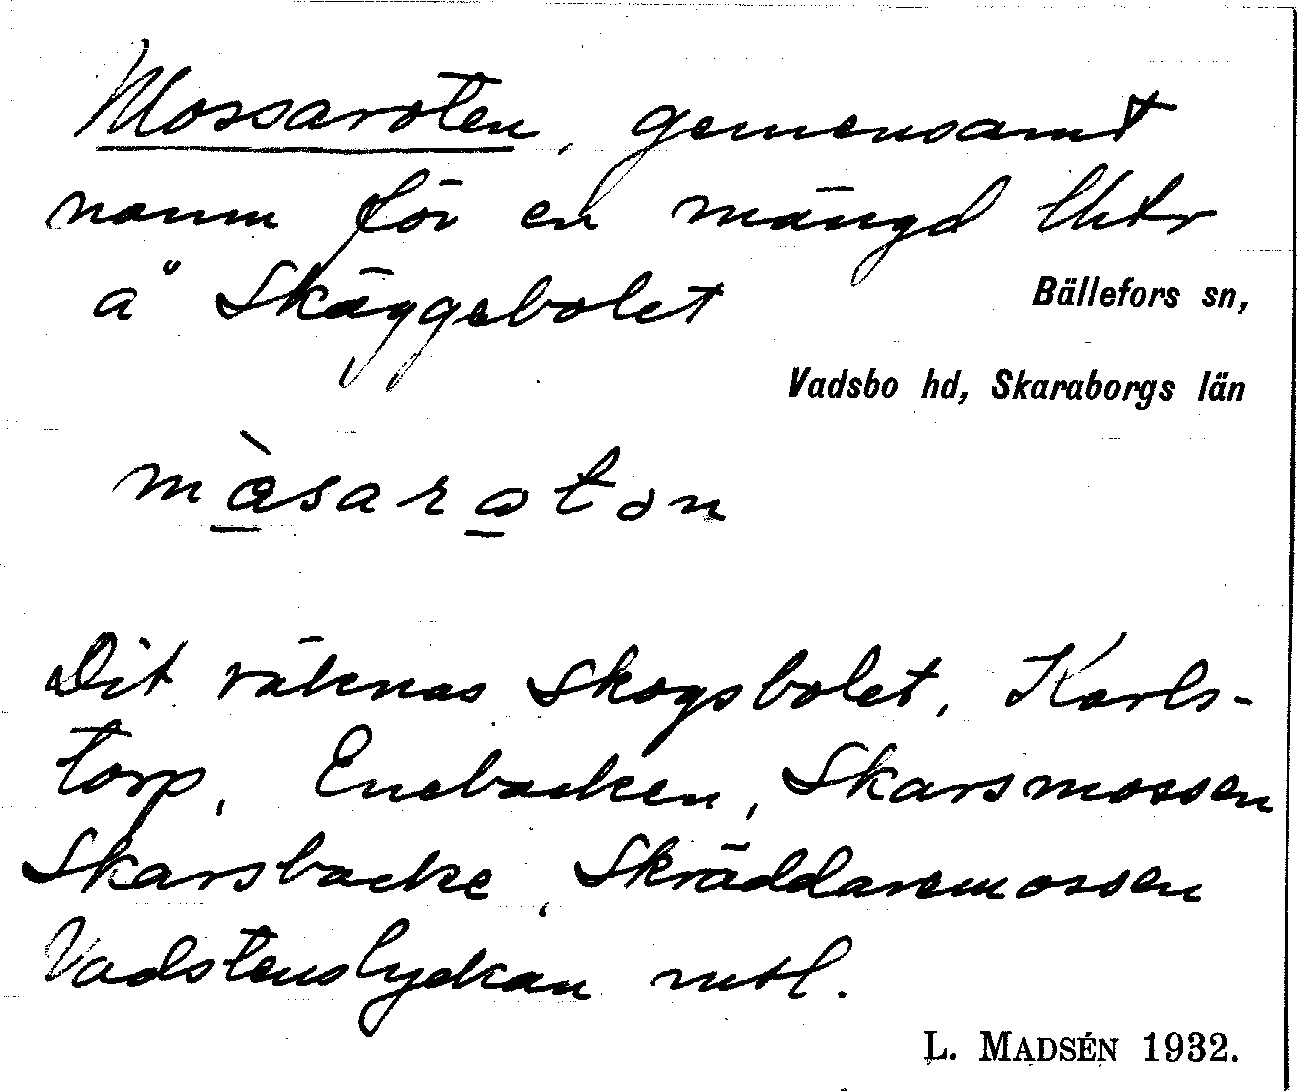 Mossaroten, gemensamt
namn för en mängd lhtr
å Skäggebolet
Bällefors sn,
Vadsbo hd, Skaraborgs län
Dit räknas Skogsbolet, Karls-
torp, Enebacken, Skarsmossen
Skarsbacke, Skräddaremossen
Vadstenslyckan mfl.
L. MADSÉN 1932.